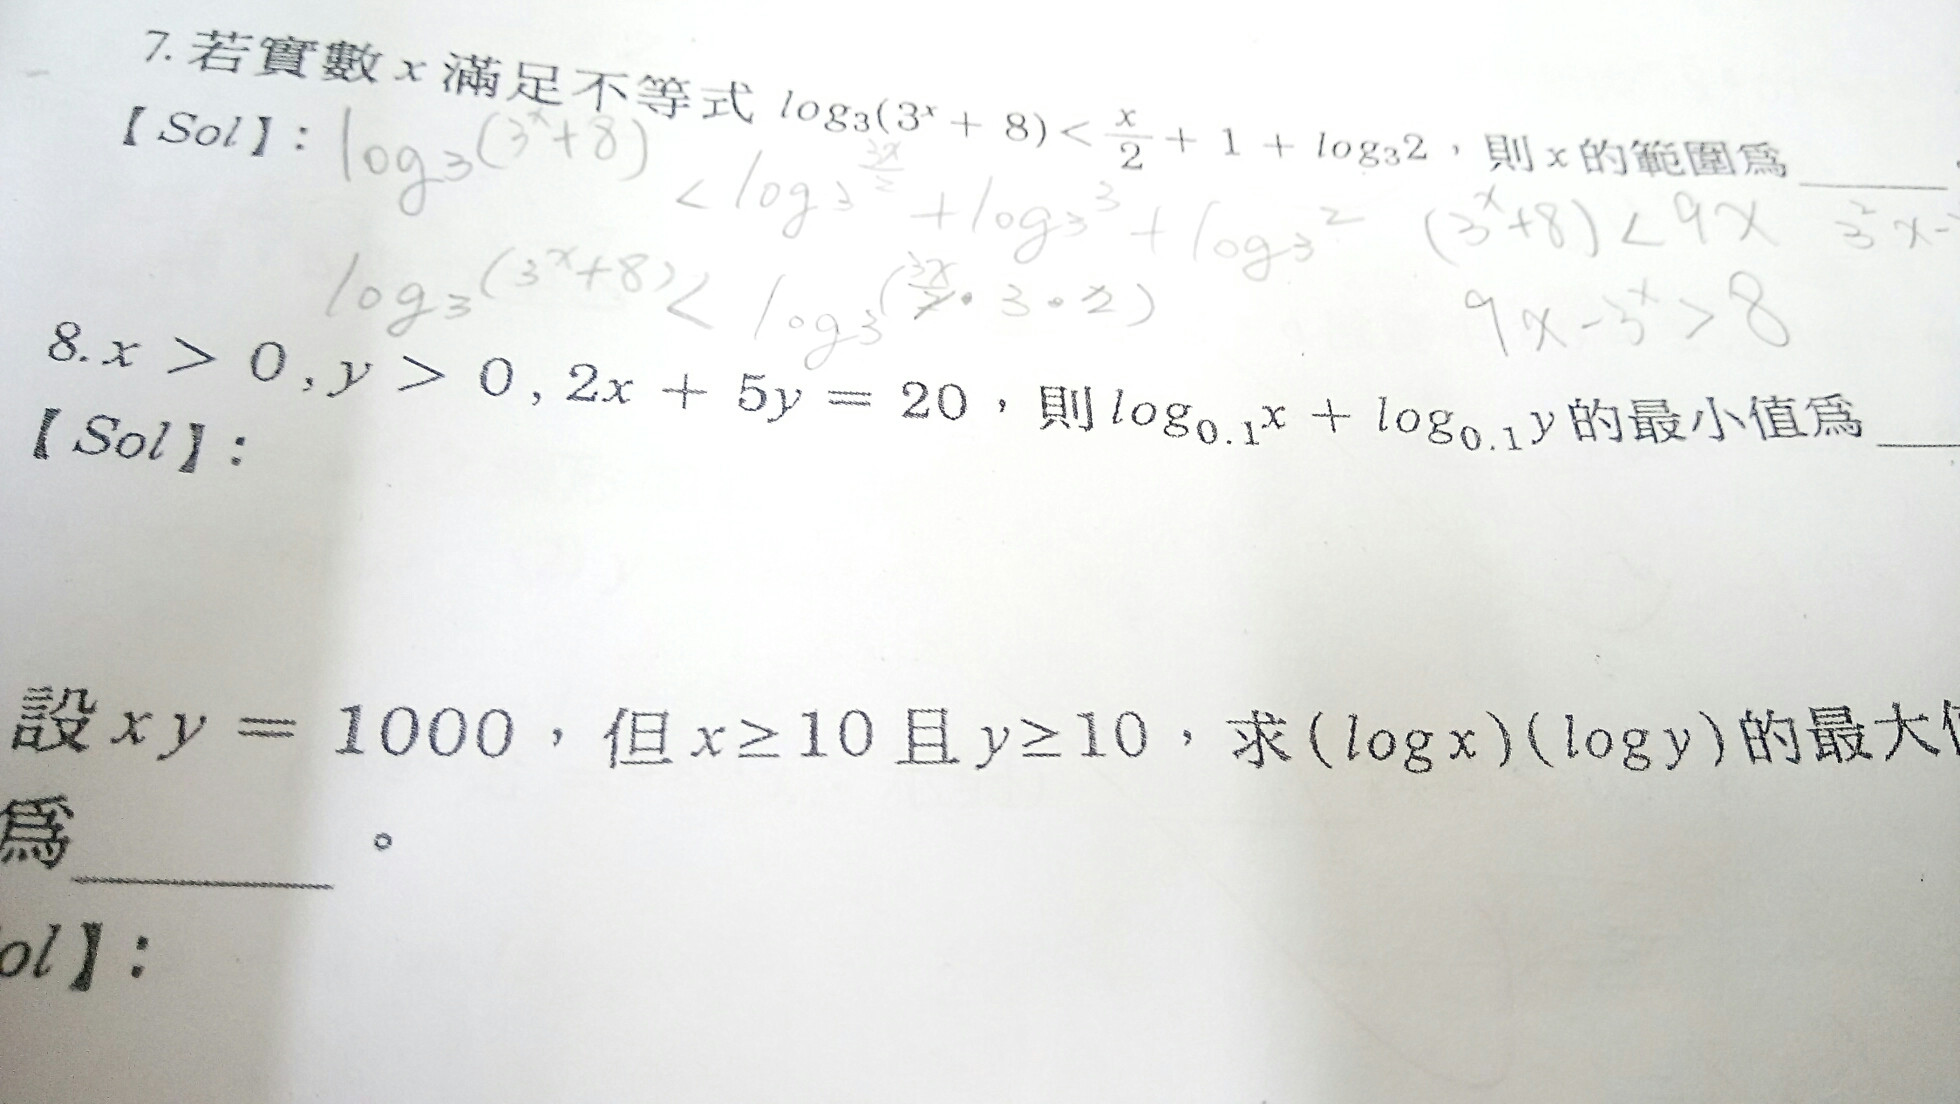 7. 若實數 x 滿足不等式 log₃(3ˣ + 8) < x/2 + 1 + log₃2,則 x 的範圍為______
【Sol】: log₃(3ˣ+8) < log₃ + log₃3 + log₃2 (3ˣ+8) < 9x 3²x-
log₃(3ˣ+8) < log₃( · 3 · 2) 9x-3ˣ > 8
8. x > 0 , y > 0 , 2x + 5y = 20,則 log₀.₁x + log₀.₁y 的最小值為____
【Sol】:
設 x y = 1000,但 x≥10 且 y≥10,求(log x)(log y)的最大
為______。
ol】: